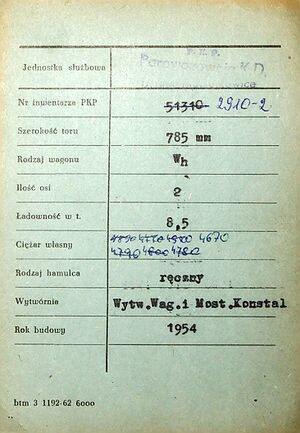 P. K. P.
Jednostka służbowa Parowozownia K.D.
Nr inwentarza PKP 51310 2910-2
Szerokość toru 785 mm
Rodzaj wagonu Wh
Ilość osi 2
Ładowność w t. 8,5
Ciężar własny 4670
Rodzaj hamulca ręczny
Wytwórnia Wytw.Wag.i Most.Konstal
Rok budowy 1954
btm 3 1192-62 6000